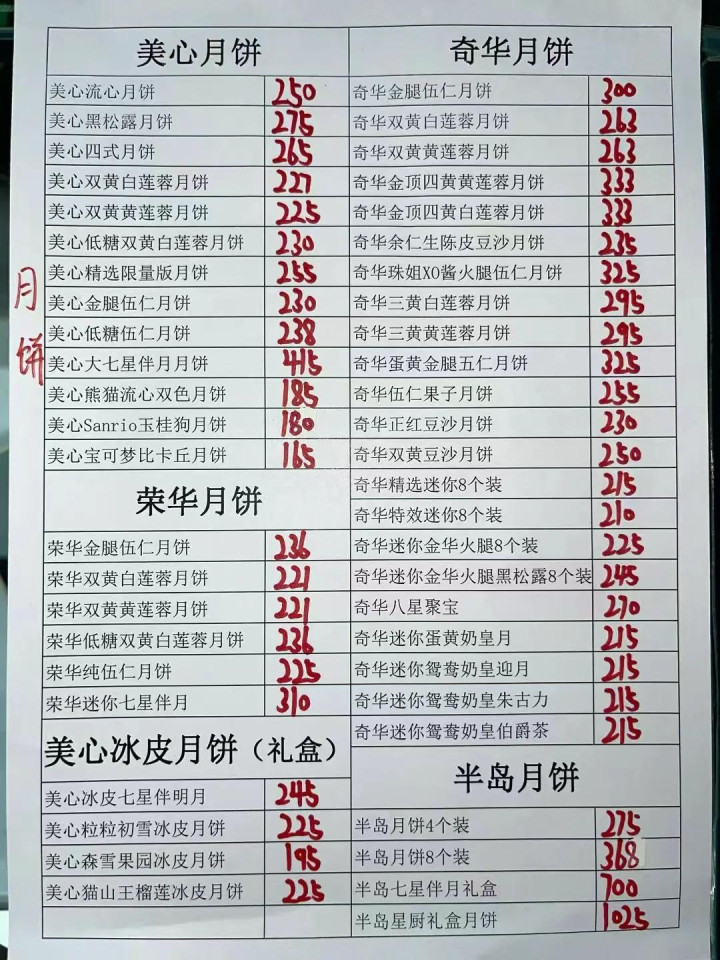 月饼
美心月饼
美心流心月饼 250
美心黑松露月饼 275
美心四式月饼 265
美心双黄白莲蓉月饼 227
美心双黄黄莲蓉月饼 225
美心低糖双黄白莲蓉月饼 230
美心精选限量版月饼 255
美心金腿伍仁月饼 230
美心低糖伍仁月饼 238
美心大七星伴月月饼 415
美心熊猫流心双色月饼 185
美心Sanrio玉桂狗月饼 180
美心宝可梦比卡丘月饼 165
荣华月饼
荣华金腿伍仁月饼 236
荣华双黄白莲蓉月饼 221
荣华双黄黄莲蓉月饼 221
荣华低糖双黄白莲蓉月饼 236
荣华纯伍仁月饼 225
荣华迷你七星伴月 310
美心冰皮月饼（礼盒）
美心冰皮七星伴明月 245
美心粒粒初雪冰皮月饼 225
美心森雪果园冰皮月饼 195
美心猫山王榴莲冰皮月饼 225
奇华月饼
奇华金腿伍仁月饼 300
奇华双黄白莲蓉月饼 263
奇华双黄黄莲蓉月饼 263
奇华金顶四黄黄莲蓉月饼 333
奇华金顶四黄白莲蓉月饼 333
奇华余仁生陈皮豆沙月饼 235
奇华珠姐XO酱火腿伍仁月饼 325
奇华三黄白莲蓉月饼 295
奇华三黄黄莲蓉月饼 295
奇华蛋黄金腿五仁月饼 325
奇华伍仁果子月饼 255
奇华正红豆沙月饼 230
奇华双黄豆沙月饼 250
奇华精选迷你8个装 215
奇华特效迷你8个装 210
奇华迷你金华火腿8个装 225
奇华迷你金华火腿黑松露8个装 245
奇华八星聚宝 270
奇华迷你蛋黄奶皇月 215
奇华迷你鸳鸯奶皇迎月 215
奇华迷你鸳鸯奶皇朱古力 215
奇华迷你鸳鸯奶皇伯爵茶 215
半岛月饼
半岛月饼4个装 275
半岛月饼8个装 368
半岛七星伴月礼盒 700
半岛星厨礼盒月饼 1025